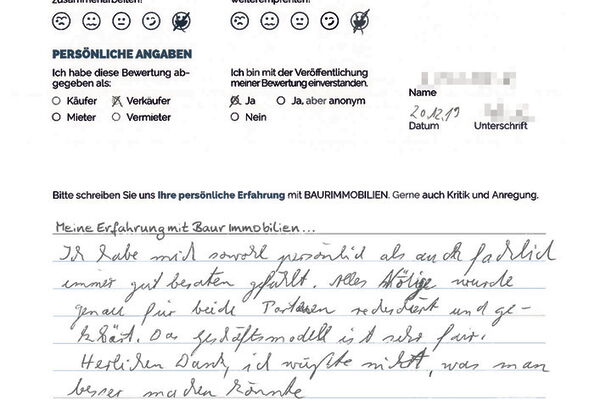 zusammenarbeiten?
weiterempfehlen?
PERSÖNLICHE ANGABEN
Ich habe diese Bewertung ab-
gegeben als:
Käufer Verkäufer
Mieter Vermieter
Ich bin mit der Veröffentlichung
meiner Bewertung einverstanden.
Ja Ja, aber anonym
Nein
Name
20.12.19
Datum Unterschrift
Bitte schreiben Sie uns Ihre persönliche Erfahrung mit BAURIMMOBILIEN. Gerne auch Kritik und Anregung.
Meine Erfahrung mit Baur Immobilien...
Ich habe mich sowohl persönlich als auch fachlich
immer gut beraten gefühlt. Alles Nötige wurde
genau für beide Parteien und ge-
klärt. Das Geschäftsmodell ist sehr fair.
Herlichen Dank, ich wüßte nicht, was man
besser machen könnte